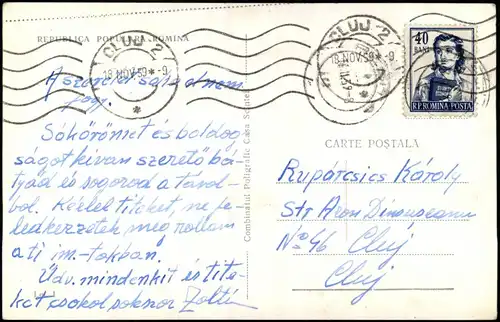 REPUBLICA POPULARĂ ROMÎNĂ
CLUJ 2
18 NOV. 59 * - 9
CLUJ 2
18 NOV. 59 * - 9
40
BANI
R.P. ROMINA POSTA
A szerelet soha el nem
fogy.
Sok örömet és boldog-
ságot kíván szerető bá-
tyád és sogorod a távol-
ból. Kérlek titeket, ne fe-
ledkezzetek meg rólam
a ti im-tokban.
Üdv. mindenkit és tite-
ket csokol sokszor Zolti
Combinatul Poligrafic Casa Scînteii
CARTE POȘTALĂ
Rupárcsics Károly
Str Aron Dinsușeanu
No 46 Cluj
Cluj